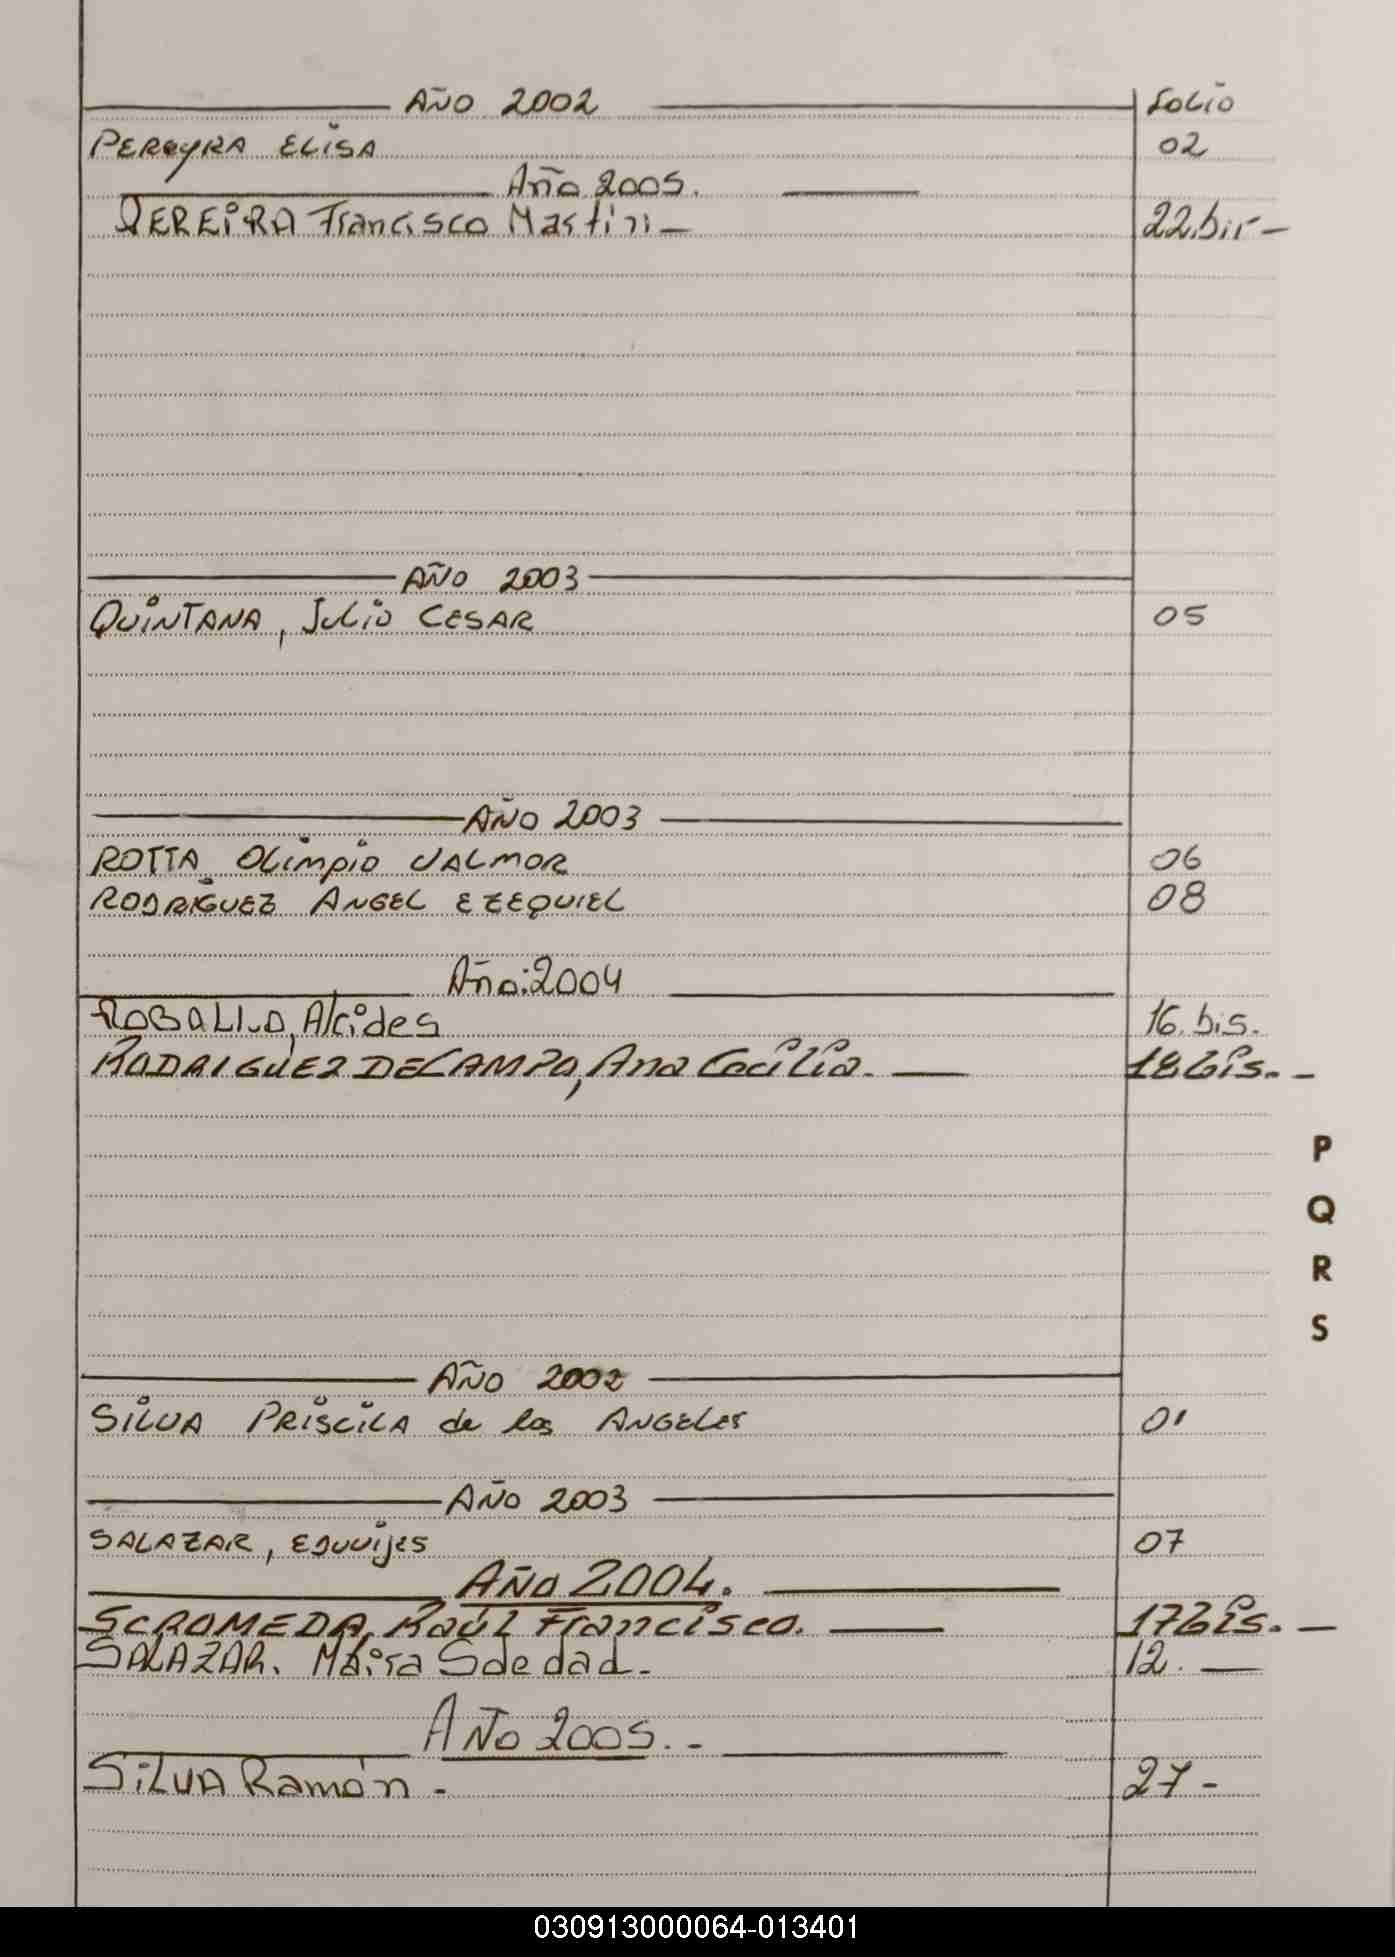 AÑO 2002 Folio
PEREYRA ELISA 02
Año 2005.
PEREIRA Francisco Martin - 22 bis -
AÑO 2003
QUINTANA, JULIO CESAR 05
AÑO 2003
ROTTA OLIMPIO VALMOR 06
RODRIGUEZ ANGEL EZEQUIEL 08
Año: 2004
ROBALLO, Alcides 16. bis.
RODRIGUEZ DELCAMPO, Ana Cecilia. — 18 bis. -
P
Q
R
S
AÑO 2002
SILVA PRISCILA de los ANGELES 01
AÑO 2003
SALAZAR, EDUVIJES 07
AÑO 2004.
SCROMEDA, Raúl Francisco. — 17 bis. —
SALAZAR. Maria Soledad. - 12. —
AÑO 2005. -
SILVA Ramón - 27 -
030913000064-013401